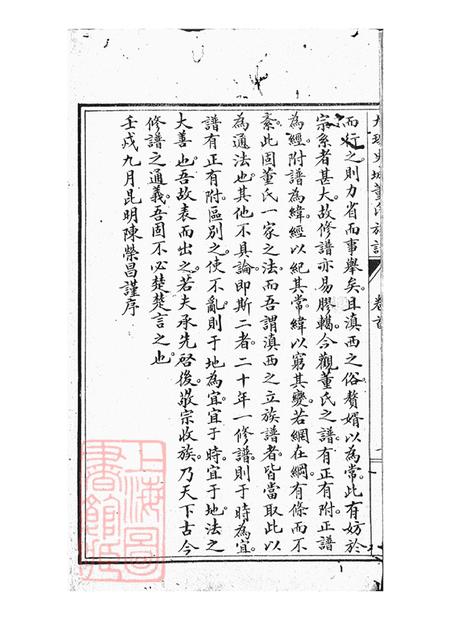 大理史城董氏族譜
卷首
而行之則力省而事舉矣且滇西之俗贅婿以為常此有妨於
宗系者甚大故修譜亦易膠轕今觀董氏之譜有正有附正譜
為經附譜為緯經以紀其常緯以窮其變若網在綱有條而不
紊此固董氏一家之法而吾謂滇西之立族譜者皆當取此以
為通法也其他不具論即斯二者二十年一修譜則于時為宜
譜有正有附區別之使不亂則于地為宜宜于時宜于地法之
大善也吾故表而出之若夫承先啓後敬宗收族乃天下古今
修譜之通義吾固不必贅贅言之也
壬戌九月昆明陳榮昌謹序
上海圖書館藏